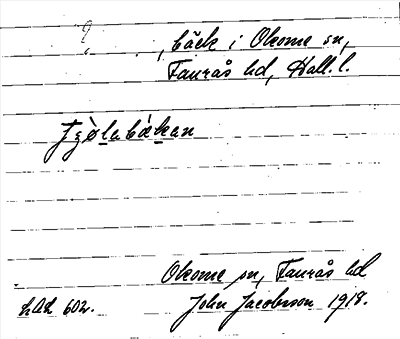 , bäck i Okome sn,
Faurås hd, Hall. l.
Okome sn, Faurås hd
602.
John Jacobsson 1918.